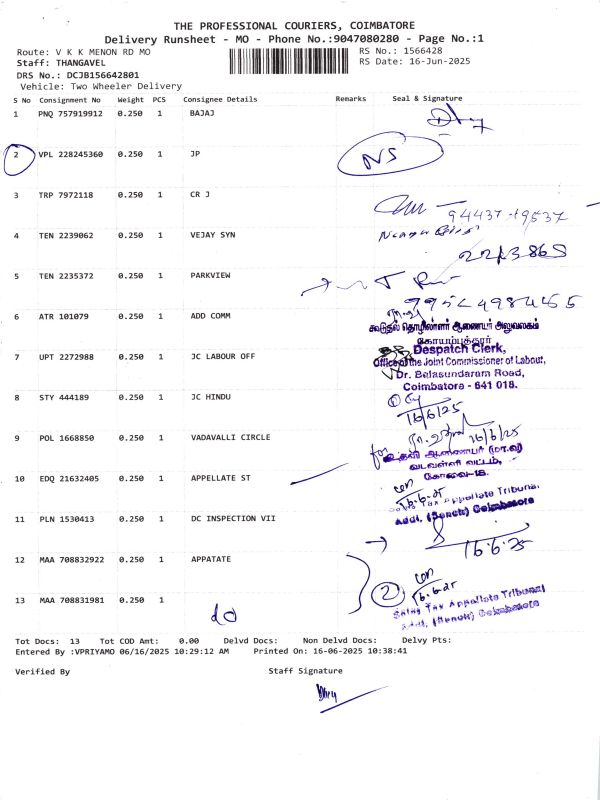 THE PROFESSIONAL COURIERS, COIMBATORE
Delivery Runsheet - MO - Phone No.:9047080280 - Page No.:1
Route: V K K MENON RD MO
RS No.: 1566428
Staff: THANGAVEL
RS Date: 16-Jun-2025
DRS No.: DCJB156642801
Vehicle: Two Wheeler Delivery
S No Consignment No Weight PCS Consignee Details Remarks Seal & Signature
1 PNQ 757919912 0.250 1 BAJAJ
2 VPL 228245360 0.250 1 JP NS
3 TRP 7972118 0.250 1 CR J
4 TEN 2239062 0.250 1 VEJAY SYN
5 TEN 2235372 0.250 1 PARKVIEW
6 ATR 101079 0.250 1 ADD COMM
கூடுதல் தொழிலாளர் ஆணையர் அலுவலகம்
கோயம்புத்தூர்
7 UPT 2272988 0.250 1 JC LABOUR OFF
Despatch Clerk,
Office of the Joint Commissioner of Labour,
Dr. Balasundaram Road,
Coimbatore - 641 018.
8 STY 444189 0.250 1 JC HINDU
16/6/25
9 POL 1668850 0.250 1 VADAVALLI CIRCLE
16/6/25
for
உதவி ஆணையர் (மா.வ)
வடவள்ளி வட்டம்,
கோவை-18.
10 EDQ 21632405 0.250 1 APPELLATE ST
Sales Tax Appellate Tribunal
Addl. (Bench) Coimbatore
11 PLN 1530413 0.250 1 DC INSPECTION VII
16.6.25
12 MAA 708832922 0.250 1 APPATATE
2
13 MAA 708831981 0.250 1
do
Sales Tax Appellate Tribunal
Addl. (Bench) Coimbatore
Tot Docs: 13 Tot COD Amt: 0.00 Delvd Docs: Non Delvd Docs: Delvy Pts:
Entered By :VPRIYAMO 06/16/2025 10:29:12 AM Printed On: 16-06-2025 10:38:41
Verified By Staff Signature